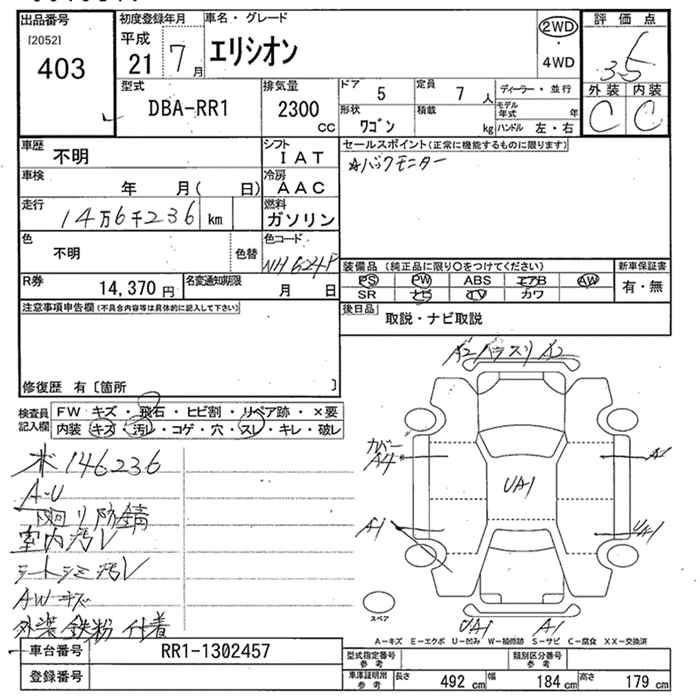 出品番号
[2052]
403
初度登録年月
平成
21 7 月
車名・グレード
エリシオン
2WD
・
4WD
評価点
3.5
外装 内装
C C
型式
DBA-RR1
排気量
2300
cc
ドア
5
定員
7 人
ディーラー・並行
モデル年式 年
形状
ワゴン
積載
kg
ハンドル 左・右
車歴
不明
シフト
IAT
車検
年 月( 日)
冷房
AAC
走行
14万6千236 km
燃料
ガソリン
色
不明
色替
色コード
NH624P
R券
14,370 円
名変通知期限
月 日
セールスポイント(正常に機能するものに限ります)
☆バックモニター
装備品 (純正品に限り○をつけてください)
PS PW ABS エアB AW
SR ナビ TV カワ
新車保証書
有・無
後日品
取説・ナビ取説
注意事項申告欄(不具合内容等は具体的に記入して下さい)
修復歴 有〔箇所 〕
検査員記入欄
FW キズ・飛石・ヒビ割・リペア跡・×要
内装 キズ・汚レ・コゲ・穴・スレ・キレ・破レ
メ 146236
A-U
下回り防錆
室内汚レ
シートシミ汚レ
AWキズ
外装鉄粉付着
バラスリ
カバー
A4
A1
A1
UA1
UA1
UA1 A1
スペア
A-キズ E-エクボ U-凹み W-補修跡 S-サビ C-腐食 XX-交換済
車台番号
RR1-1302457
登録番号
型式指定番号
参考
類別区分番号
参考
車庫証明用
参考
長さ 492 cm 幅 184 cm 高さ 179 cm